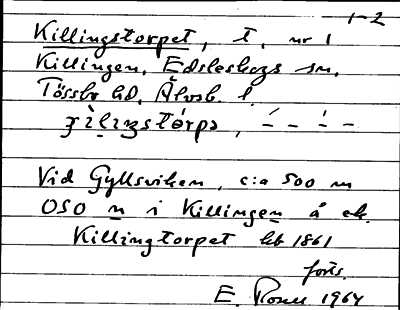 1-2
Killingstorpet, t. nr 1
Killingen, Edsleskogs sn,
Tössbo hd, Älvsb. l.
Vid Gyllsviken, c:a 500 m
OSO n i Killingen å ek.
Killingtorpet hb 1861
forts.
E. 1964